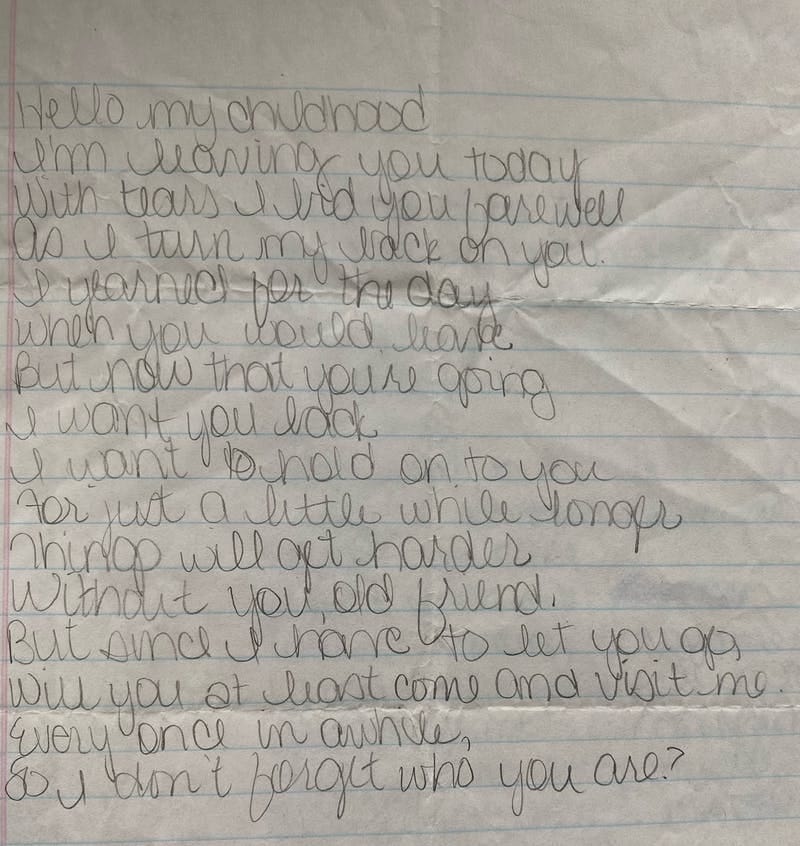 Hello my childhood
I'm leaving you today
With tears I bid you farewell
As I turn my back on you.
I yearned for the day
when you would leave
But now that you're going
I want you back
I want to hold on to you
For just a little while longer
Things will get harder
Without you, old friend.
But since I have to let you go,
Will you at least come and visit me.
Every once in awhile,
So I don't forget who you are?